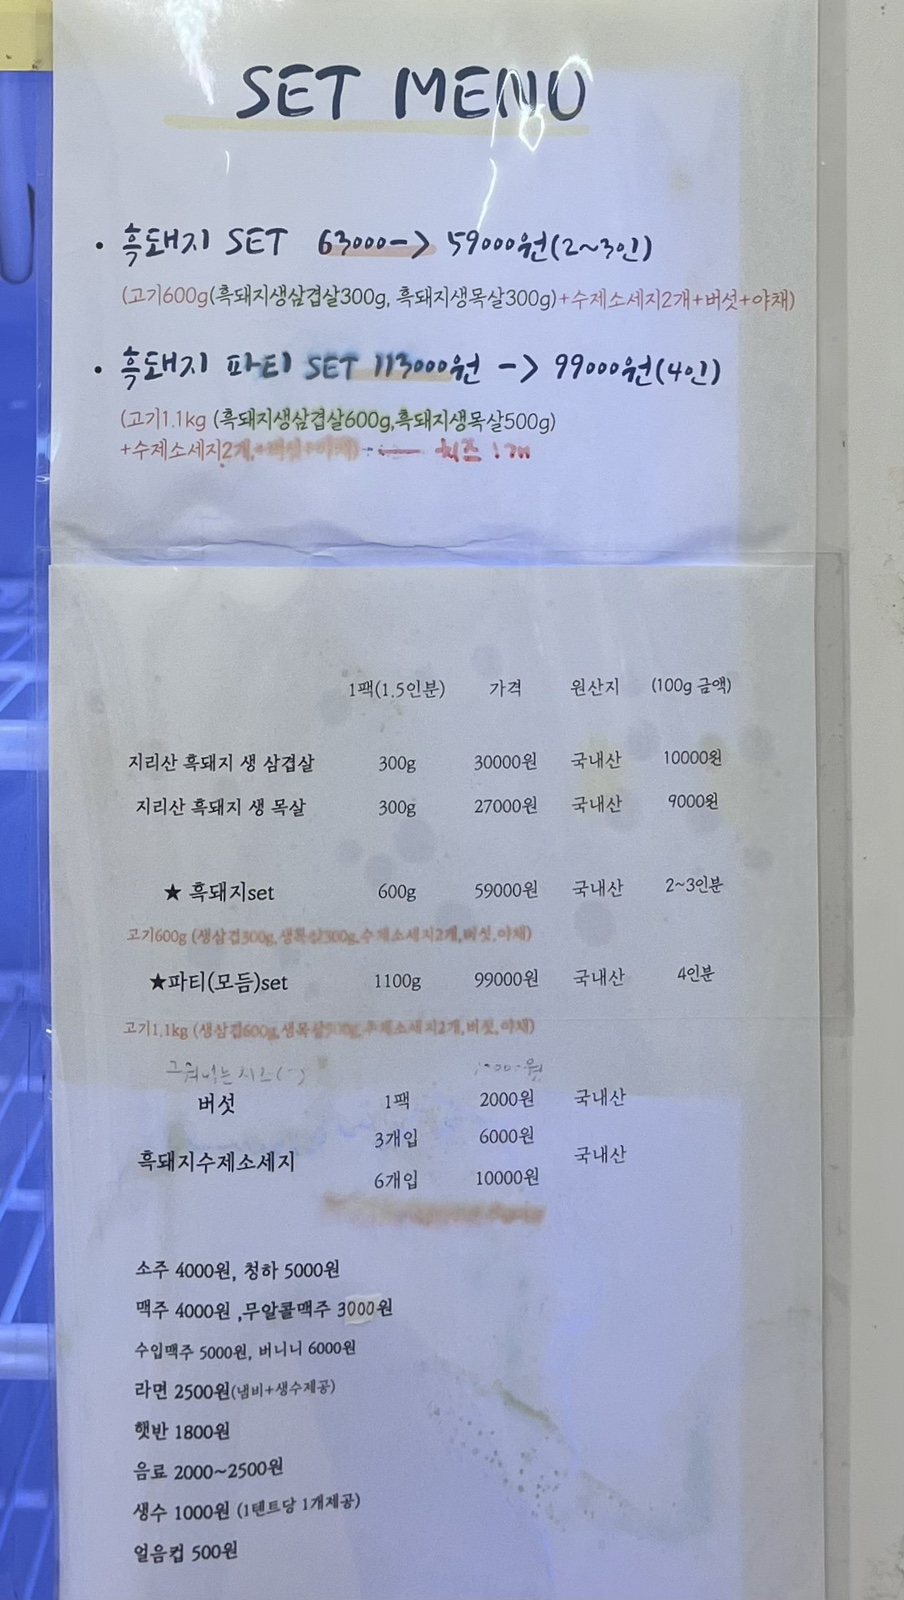 SET MENU
• 흑돼지 SET 63000-> 59000원(2~3인)
(고기600g(흑돼지생삼겹살300g, 흑돼지생목살300g)+수제소세지2개+버섯+야채)
• 흑돼지 파티 SET 113000원 -> 99000원(4인)
(고기1.1kg (흑돼지생삼겹살600g,흑돼지생목살500g)
+수제소세지2개,+버섯+야채) 치즈 1개
1팩(1.5인분) 가격 원산지 (100g 금액)
지리산 흑돼지 생 삼겹살 300g 30000원 국내산 10000원
지리산 흑돼지 생 목살 300g 27000원 국내산 9000원
★ 흑돼지set 600g 59000원 국내산 2~3인분
고기600g (생삼겹300g,생목살300g,수제소세지2개,버섯,야채)
★파티(모듬)set 1100g 99000원 국내산 4인분
고기1.1kg (생삼겹600g,생목살500g,수제소세지2개,버섯,야채)
구워먹는치즈
버섯 1팩 2000원 국내산
흑돼지수제소세지 3개입 6000원 국내산
6개입 10000원
소주 4000원, 청하 5000원
맥주 4000원 ,무알콜맥주 3000원
수입맥주 5000원, 버니니 6000원
라면 2500원(냄비+생수제공)
햇반 1800원
음료 2000~2500원
생수 1000원 (1텐트당 1개제공)
얼음컵 500원